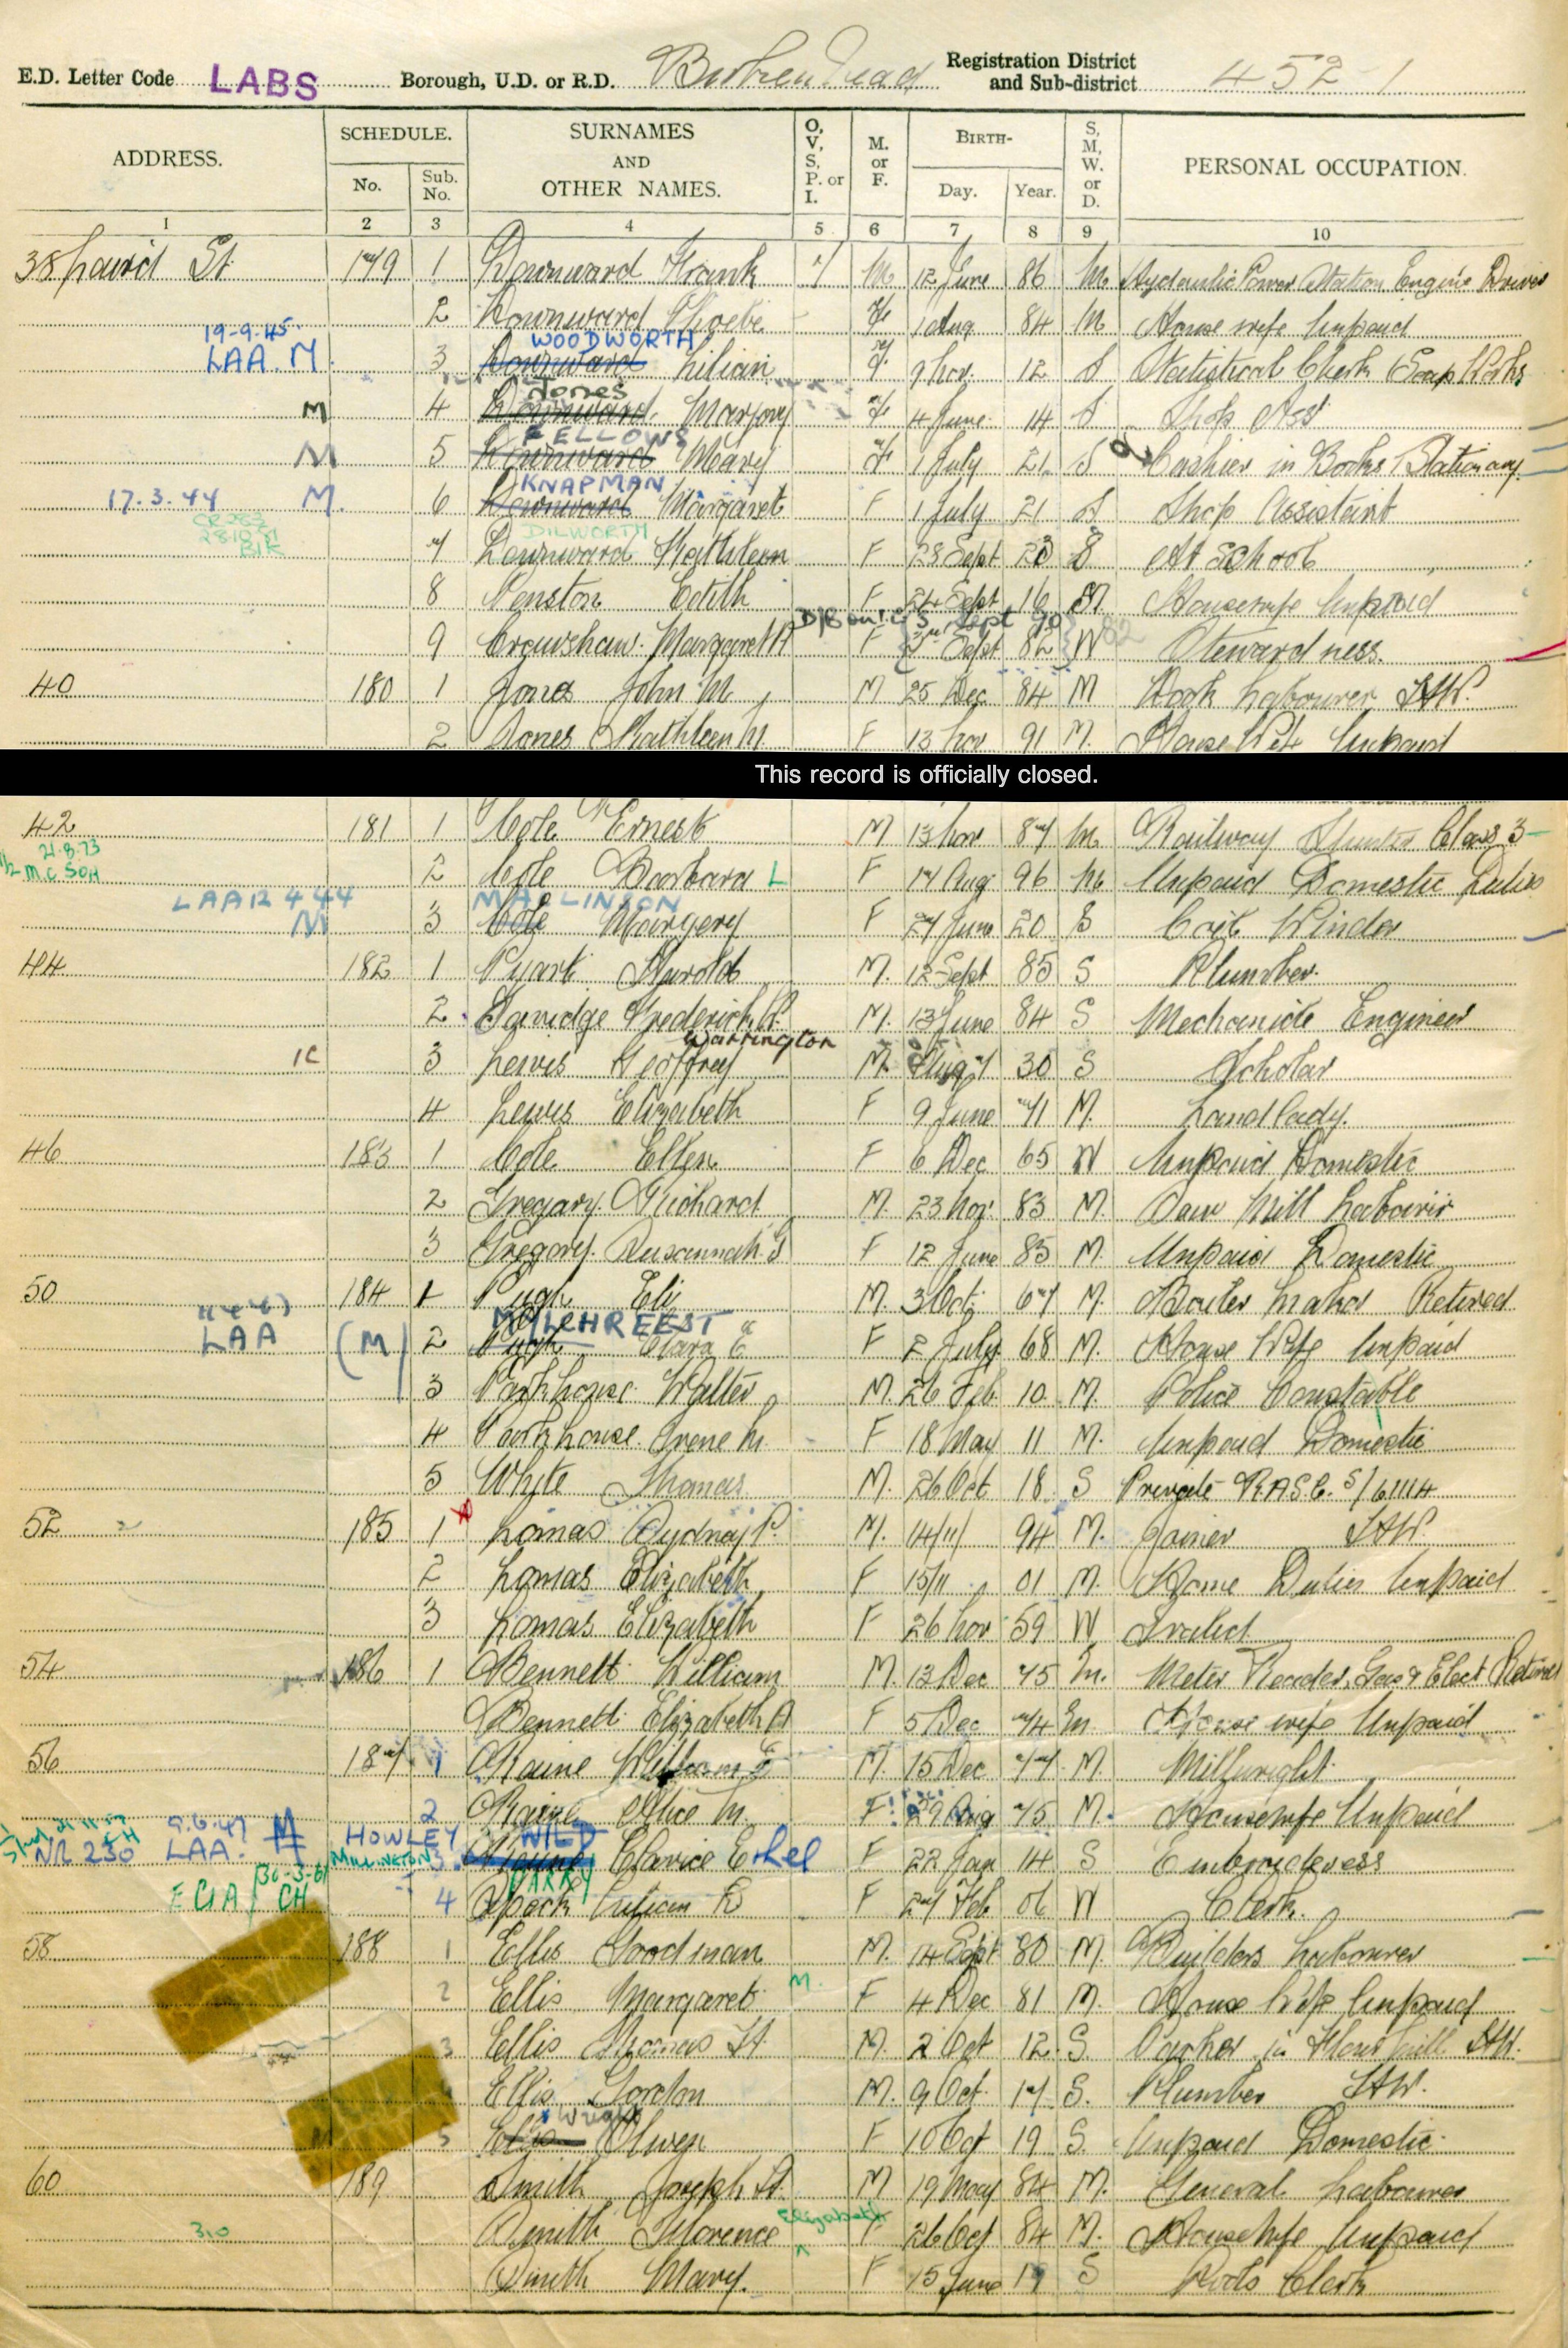 E.D. Letter Code LABS Borough, U.D. or R.D. Birkenhead Registration District and Sub-district 452-1
ADDRESS. SCHEDULE. No. Sub. No. SURNAMES AND OTHER NAMES. O, V, S, P. or I. M. or F. BIRTH- Day. Year. S, M, W. or D. PERSONAL OCCUPATION.
1 2 3 4 5 6 7 8 9 10
38 Laird St 179 1 Downward Frank M 12 June 86 M Hydraulic Power Station Engine Driver
2 Downward Phoebe F 1 Aug 84 M House wife Unpaid
19-9-45. WOODWORTH
LAA. M. 3 Downward Lilian F 9 Nov 12 S Statistical Clerk Soap Works
Jones
M 4 Downward Marjory F 4 June 14 S Shop Asst
FELLOWS
M 5 Downward Mary F 1 July 21 S Cashier in Books Stationary
KNAPMAN
17.3.44 M. 6 Downward Margaret F 1 July 21 S Shop Assistant
DILWORTH
7 Downward Kathleen F 28 Sept 23 S At School
8 Edith F 24 Sept 16 M Housewife Unpaid
Sept 90
9 Crowshaw Margaret A F Sept 82 W Stewardness.
40 180 1 Jones John M M 25 Dec 84 M Dock Labourer H.W.
2 Jones Kathleen M F 13 Nov 91 M. House Wife Unpaid
This record is officially closed.
42 181 1 Cole Ernest M 13 Nov 87 M Railway Shunter Class 3
21.8.73
2 Cole Barbara L F 17 Aug 96 M Unpaid Domestic Duties
LAA 12 4 44 MAPLINSON
M 3 Cole Margery F 27 June 20 S Coil Winder
44 182 1 Harold M. 12 Sept 85 S Plumber.
2 Frederick M. 13 June 84 S Mechanic Engineer
Warrington
1C 3 Lewis Geoffrey M. Aug 7 30 S Scholar
4 Lewis Elizabeth F 9 June 71 M. Landlady.
46 183 1 Cole Ellen F 6 Dec 65 W Unpaid Domestic
2 Gregory Richard M. 23 Nov 83 M. Saw Mill Labourer
3 Gregory Susannah F 12 June 85 M. Unpaid Domestic
50 184 1 Pugh Eli M. 3 Oct 67 M. Boiler Maker Retired
MYLCHREEST
LAA (M) 2 Pugh Clara E F 2 July 68 M. House Wife Unpaid
3 Parkhouse Walter M. 26 Feb 10 M. Police Constable
4 Parkhouse Irene M F 18 May 11 M. Unpaid Domestic
5 White Thomas M. 26 Oct 18 S Private R.A.S.C. S/61114
52 185 1 Lomas Sydney P. M. 14/11/ 94 M. Joiner H.W.
2 Lomas Elizabeth F 15/11 01 M. Home Duties Unpaid
3 Lomas Elizabeth F 26 Nov 59 W Invalid
54 186 1 Bennett William M. 13 Dec 75 M. Meter Reader, Gas & Elect Retired
Bennett Elizabeth A F 5 Dec 74 M House wife Unpaid
56 187 1 Raine William M. 15 Dec 77 M. Millwright.
2 Raine Alice M. F 29 Aug 75 M. Housewife Unpaid
9.6.47 M HOWLEY WILD
NR 230 LAA. MILLINGTON 3 Raine Clarice Ethel F 22 Jan 14 S Embroideress
30-3-61 PARRY
CH 4 Spack Lilian R F 27 Feb 06 W Clerk.
58 188 1 Ellis Goodman M. 14 Sept 80 M. Builders Labourer
2 Ellis Margaret M. F 4 Dec 81 M. House Wife Unpaid
3 Ellis Thomas H. M. 2 Oct 12. S. Packer in Flour Mill H.W.
Ellis Gordon M. 9 Oct 17 S. Plumber H.W.
Wright
5 Ellis Olwen F 10 Oct 19 S. Unpaid Domestic
60 189 Smith Joseph H. M 19 May 84 M. General Labourer
Elizabeth
310 Smith Florence F 26 Oct 84 M. Housewife Unpaid
Smith Mary. F 15 June 19 S Clerk